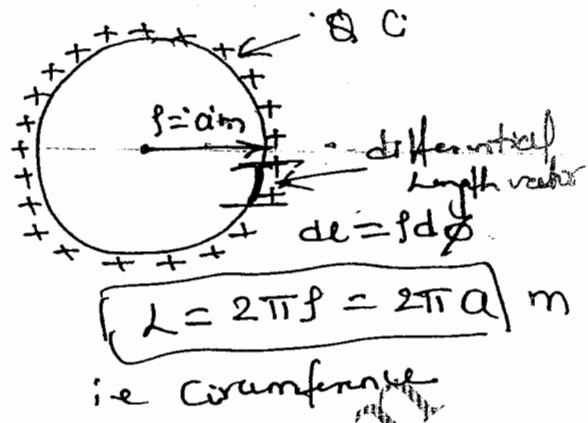 Q C
ρ = a m
differential
Length vector
dl = ρdφ
L = 2πρ = 2πa m
i.e Cirumference